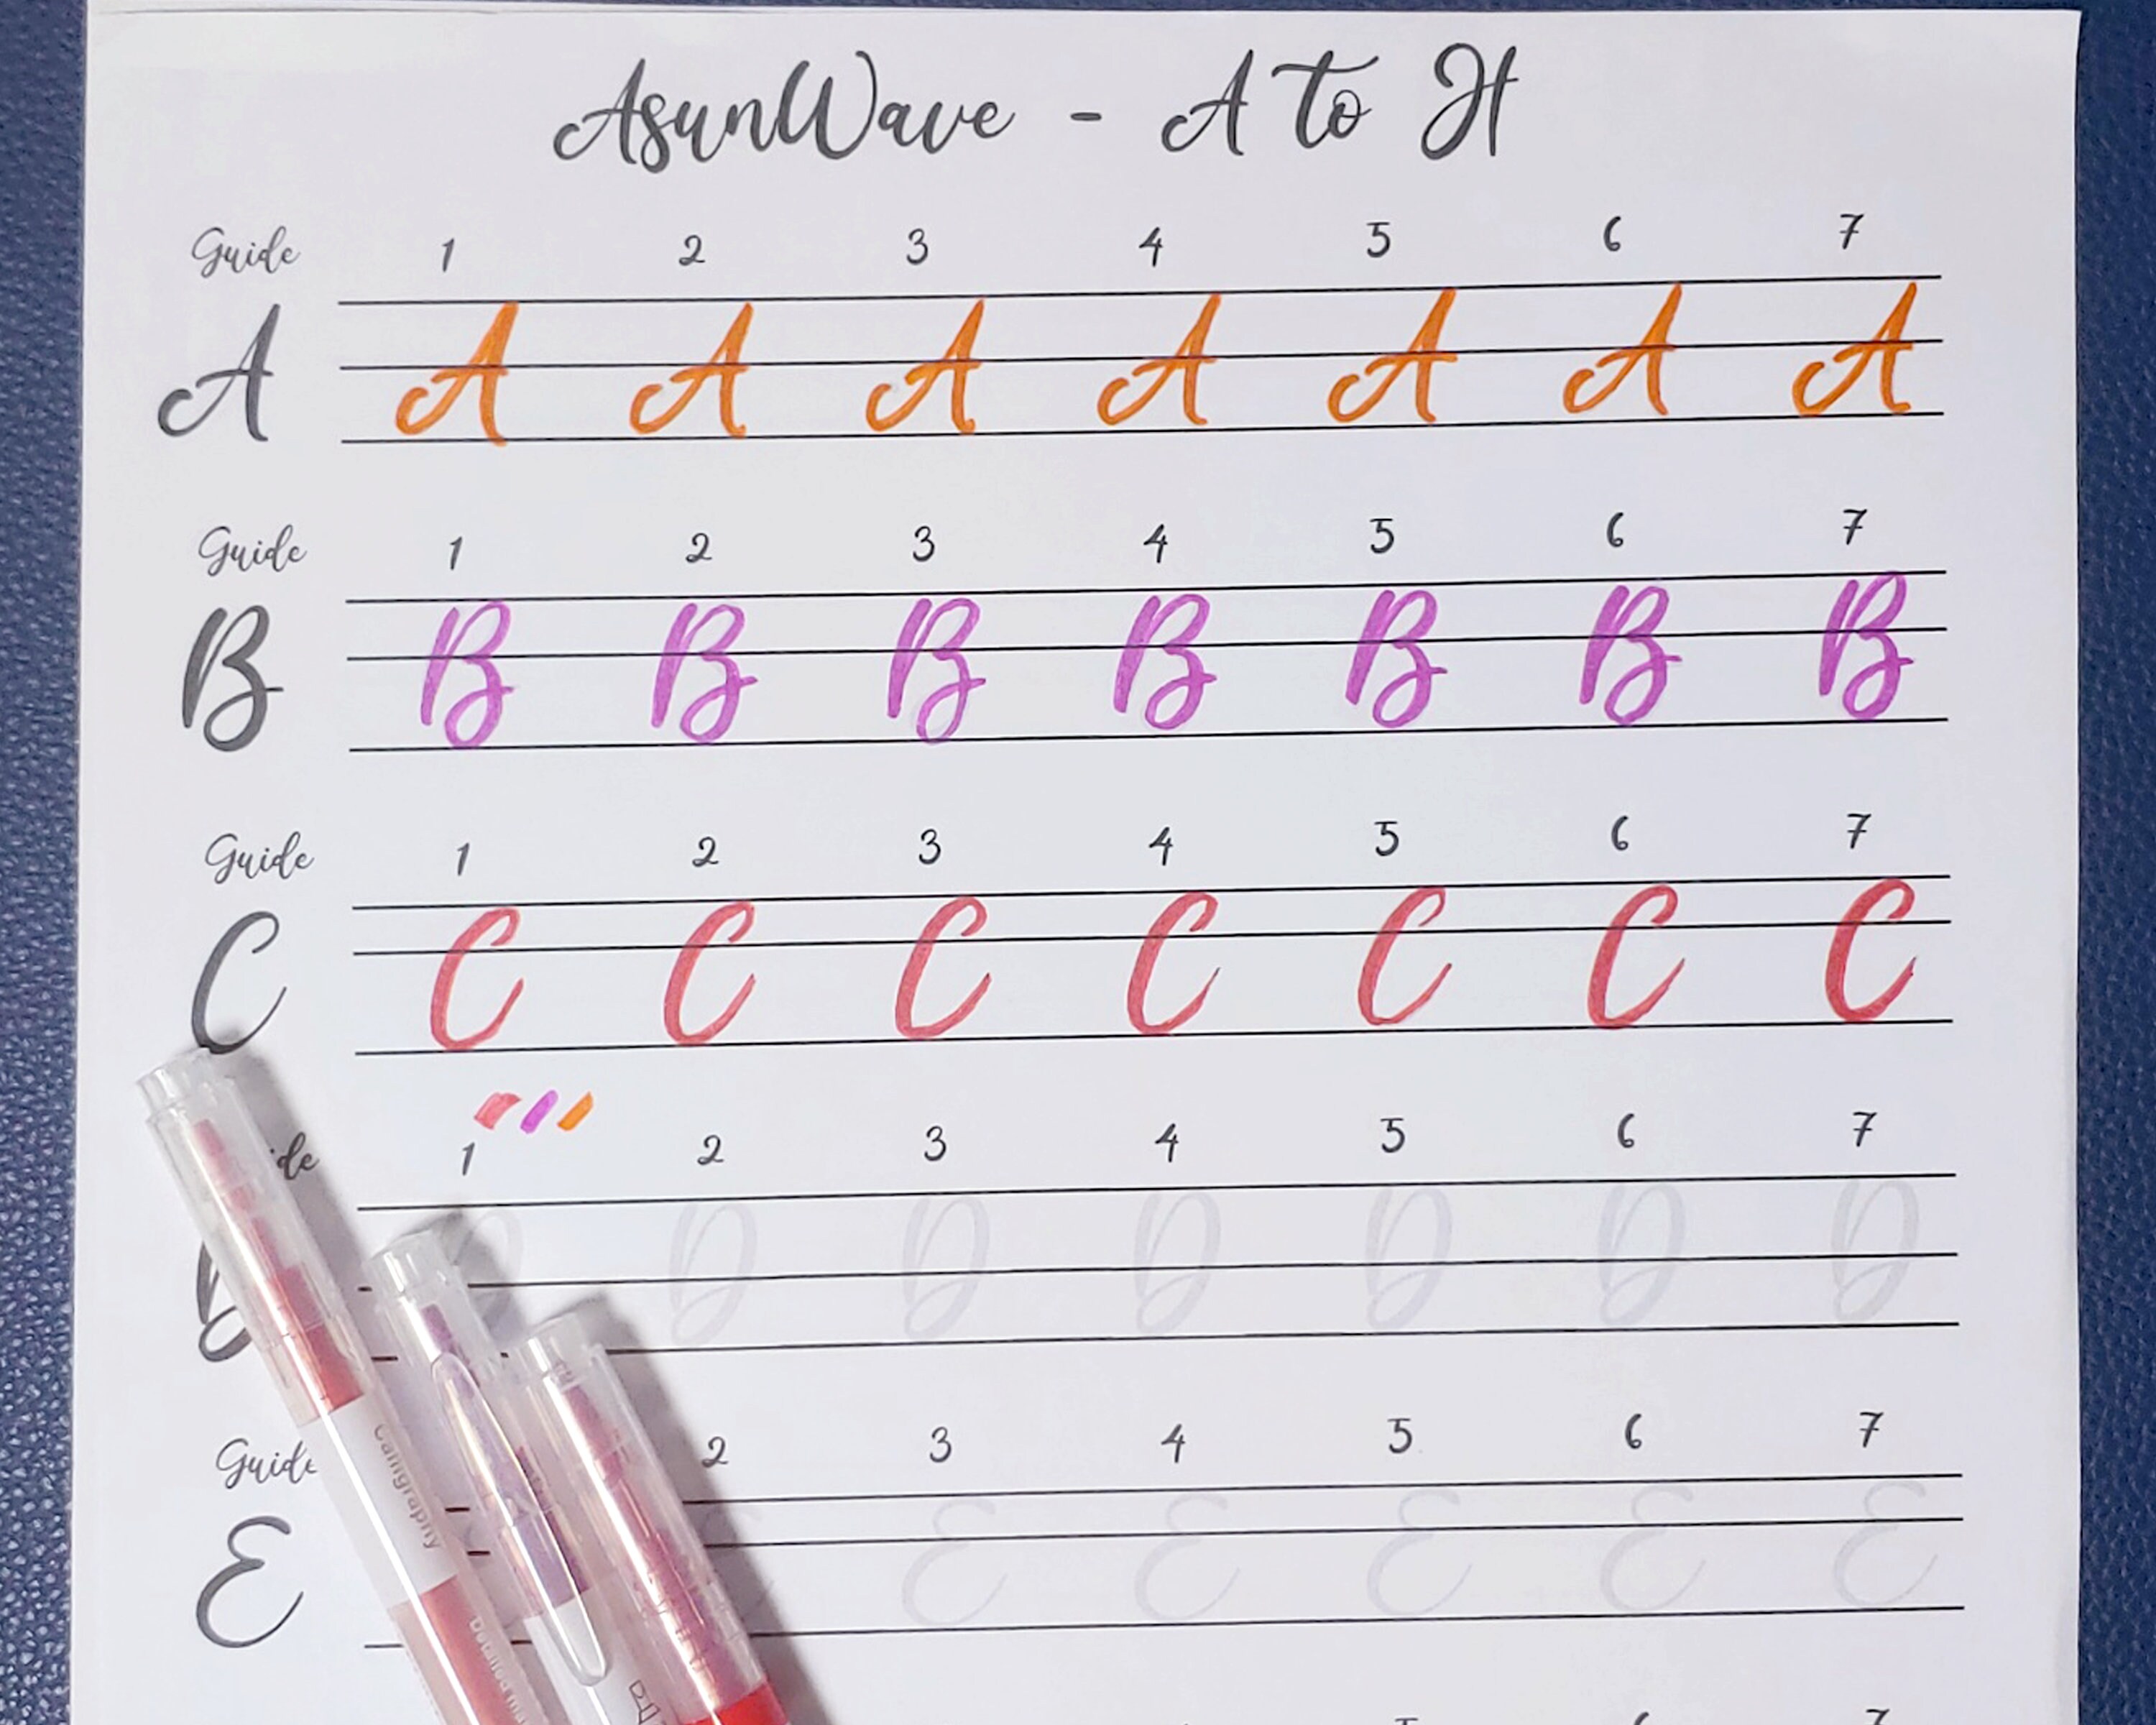 AsunWave - A to H
Guide 1 2 3 4 5 6 7
A A A A A A A A
Guide 1 2 3 4 5 6 7
B B B B B B B B
Guide 1 2 3 4 5 6 7
C C C C C C C C
de 1 2 3 4 5 6 7
D D D D D D D D
Guide 2 3 4 5 6 7
E E E E E E E
Calligraphy
5 6 7